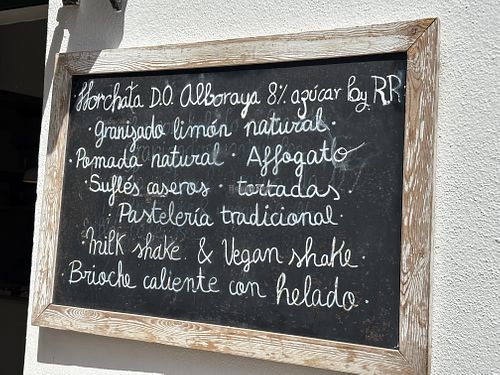 Horchata D.O. Alboraya 8% azúcar by RR
· granizado limón natural ·
· Pomada natural · Affogato
· Suflés caseros · tortadas ·
· Pastelería tradicional ·
· Milk shake & Vegan shake ·
· Brioche caliente con helado ·